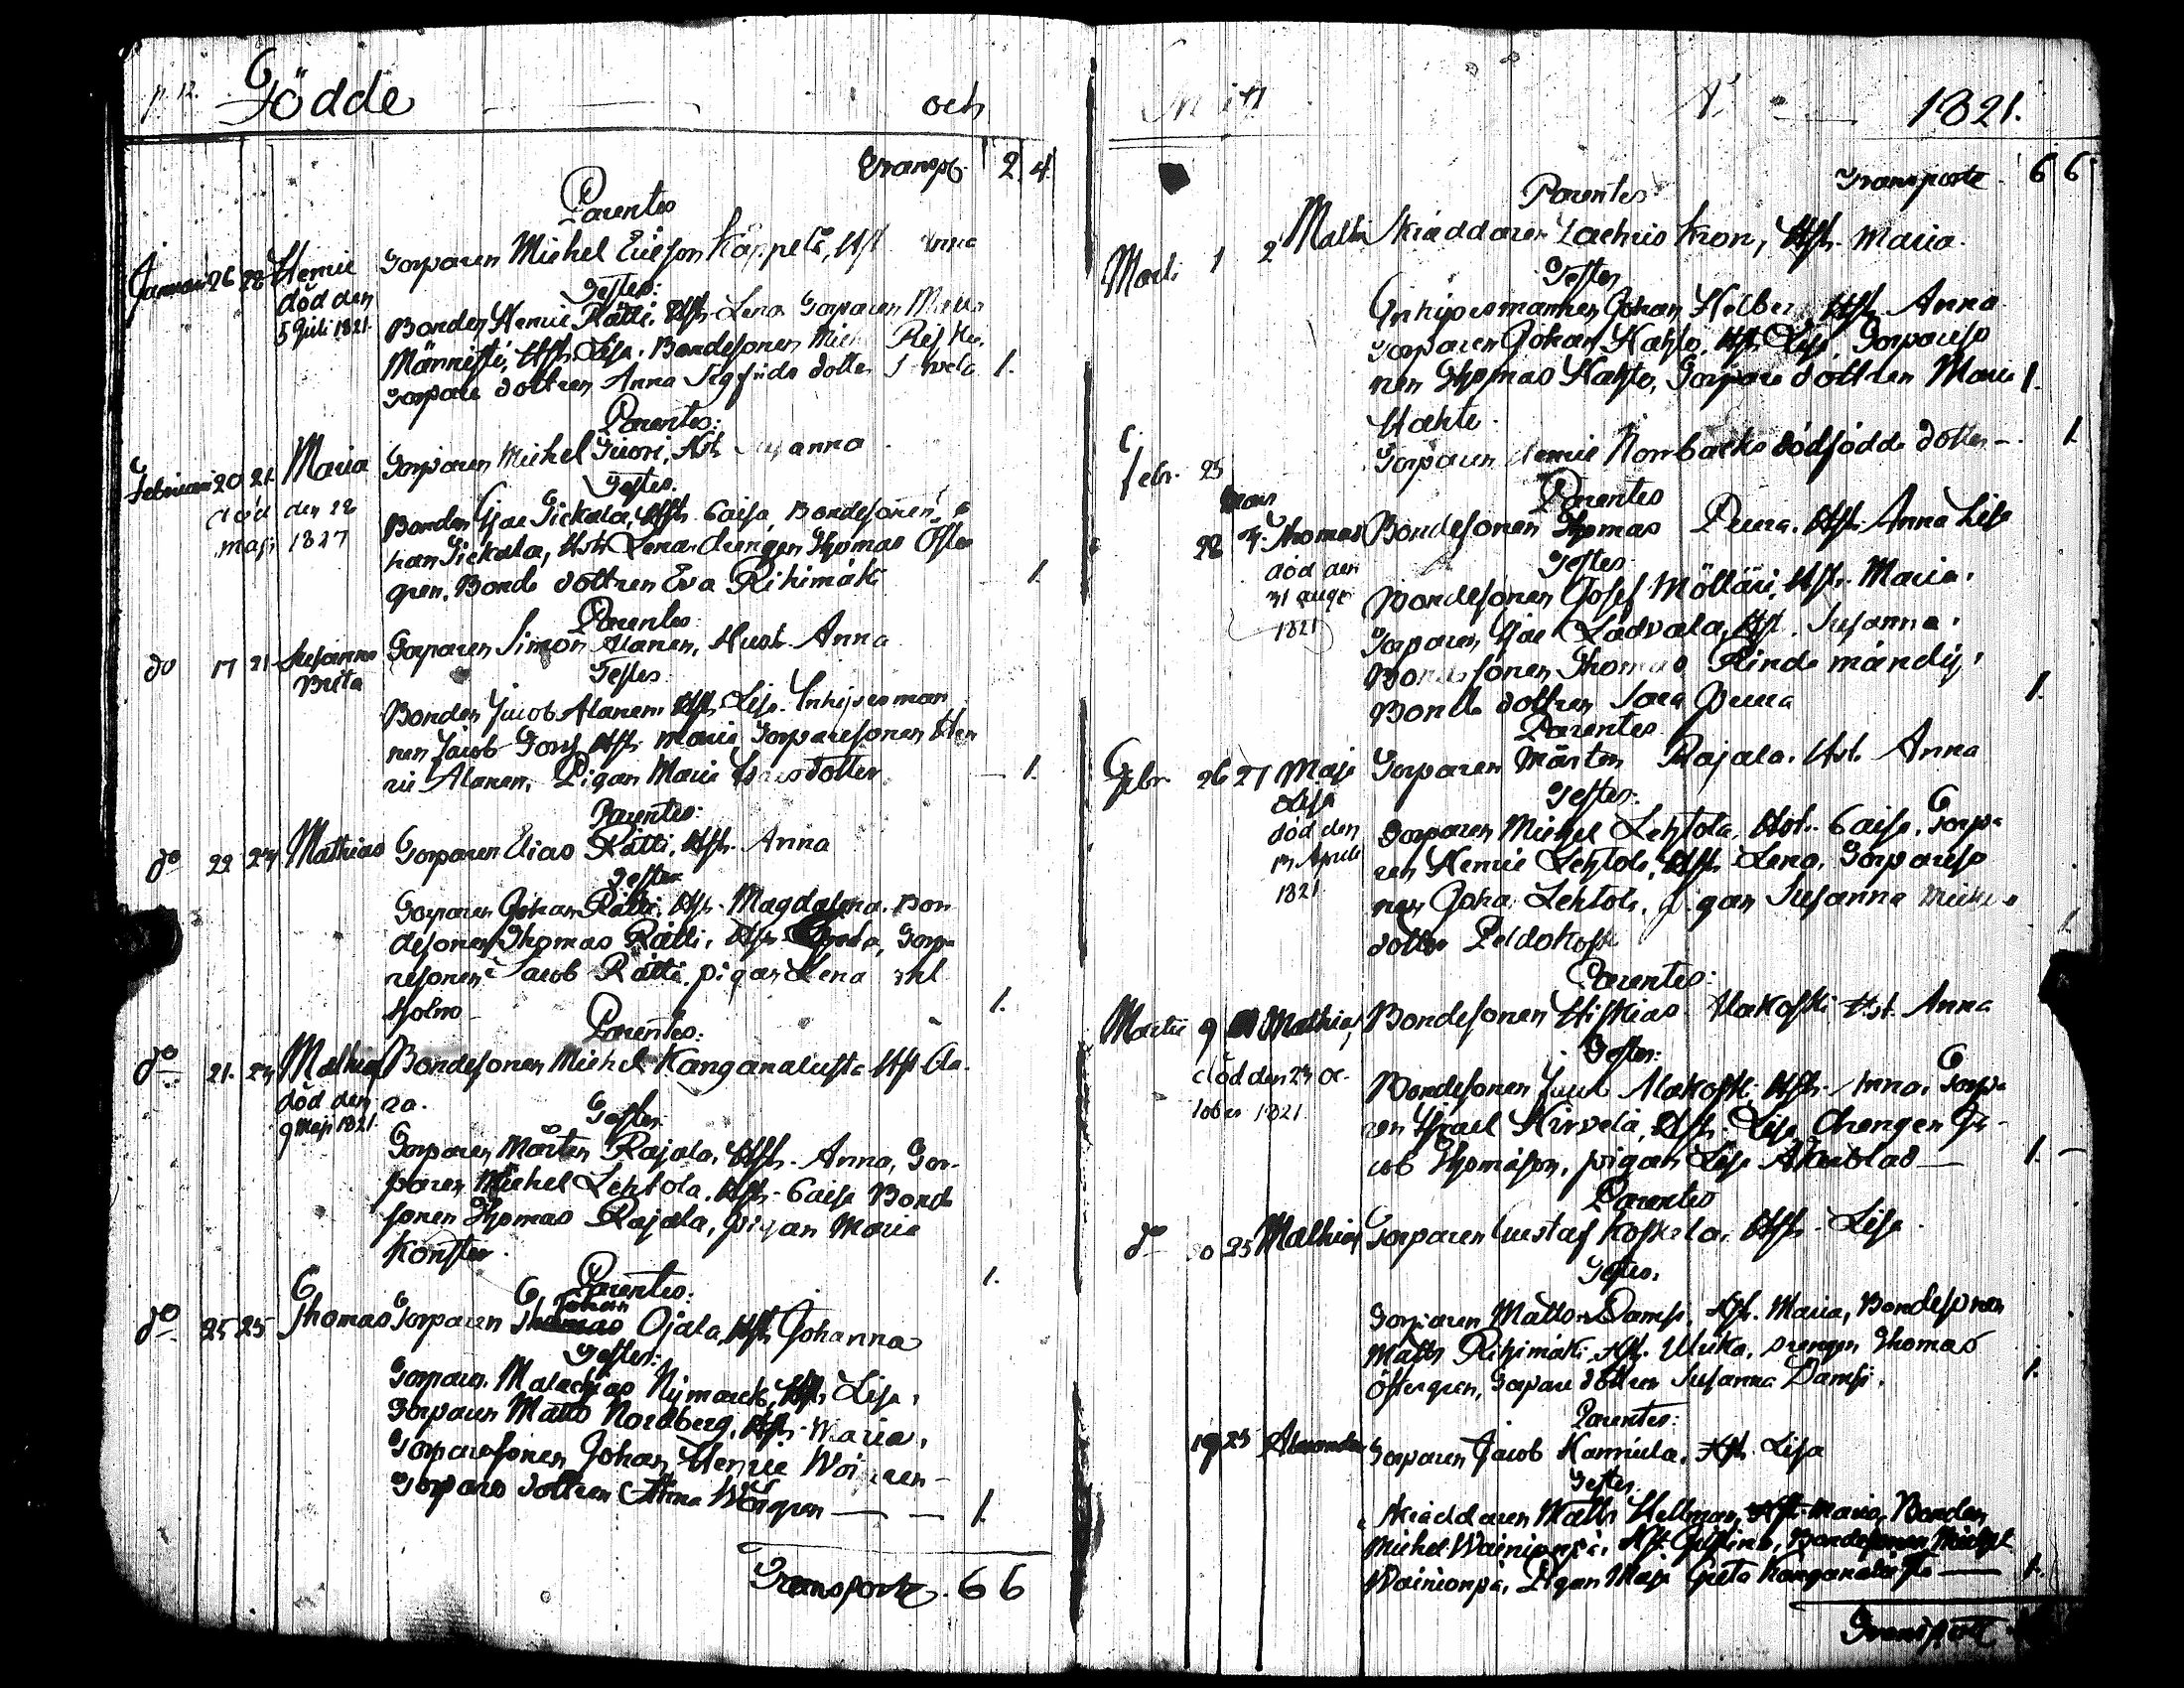 p. 12.
Födde och
Transp. 2. 4.
Parentes
Januari 26 28 Henric Torparen Michel Ericson Käppelä, Hst Anna
död den 5 Juli 1821.
Testes:
Bonden Henric Rätti, Hst. Lena Torparen Matts
Männistö, Hst. Lisa. Bondesonen Mich
Torpare dottren Anna Sigfrids dotter 1.
Parentes:
Februari 20 21. Maria Torparen Michel Hst Susanna
död den 28 maji 1827
Testes.
Bonden Isac Sickala, Hst. Caisa, Bondesonen Jo
han Sickala, Hst. Lena drengen Thomas Öster
gren. Bonde dottren Eva Rihimäki 1.
Parentes
do 17 21 Susanna Brita Torparen Simon Alanen, Hust. Anna
Testes
Bonden Jacob Alanen Hst. Lisa. Inhysesman
nen Jacob Hst. Maria, Torparesonen Hen
ric Alanen, Pigan Maria Isacsdotter 1.
Parentes:
do 22 24 Mathias Torparen Elias Rätti, Hst. Anna
Testes
Torparen Johan Rätti, Hst. Magdalena. Bon
desonen Thomas Rätti, Hst. Torpa
resonen Jacob Rätti. pigan Lena
holm 1.
Parentes:
do 21. 24 Mathias Bondesonen Michel Kanganalusta Hst Cla
död den 9 Maji 1821.
ra.
Testes
Torparen Mårten Rajala, Hst. Anna, Tor-
paren Michel Lehtola, Hst. Caisa Bond
sonen Thomas Rajala, pigan Maria
Konster. 1.
Parentes:
do 25 25 Thomas Torparen Johan Ojala, Hst. Johanna
Testes:
Torparen Malachias Nymarck, Hst. Lisa,
Torparen Matts Nordberg, Hst. Maria,
Torparesonen Johan Henric
Torpare dottren Anna 1.
Transporte. 6 6
1821.
Transporte 6 6
Parentes
Marti 1 2 Malin Skräddaren Zachris Kron, Hst. Maria.
Testes
Inhysesmannen Johan Helberg Hst. Anna
Torparen Johan Hahto, Hst. Lisa, Torpareso
nen Thomas Hahto, Torpare dottren Maria 1.
Hahto.
Febr. 25 Torparen Henric Norrbacks dödfödde dotter - 1
Parentes
28 Thomas Bondesonen Thomas Peura. Hst. Anna Lisa
död den 31 aug. 1821
Testes
Bondesonen Josef Möttäri, Hst. Maria.
Torparen Isac Ladvala, Hst. Susanna.
Bondesonen Thomas
Bonde dottren Sara Peura 1.
Parentes
Febr. 26 27 Maja Lisa Torparen Mårten Rajala. Hst. Anna
död den Aprili 1821
Testes:
Torparen Michel Lehtola, Hst. Caisa, Torpa
ren Henric Lehtola, Hst. Lena. Torpareso
nen Johan Lehtola, pigan Susanna Michels
dotter Peldokoski
Parentes:
Martii 9 Mathias Bondesonen Hiskias Alakoski Hst. Anna
död den 23 oc-
tober 1821.
Testes:
Bondesonen Jacob Alakoski, Hst. Anna, Torpa
ren Israel Hirvelä, Hst. Lisa, drengen Ja-
cob Thomason, pigan Lisa Åkerblad 1.
Parentes
do 20 25 Mathias Torparen Gustaf Koskela, Hst. Lisa
Testes.
Torparen Matts Damsi, Hst. Maria, Bondesonen
Matts Rihimäki, Hst. Ulrika, drengen Thomas
Östergren, Torpare dottren Susanna Damsi. 1.
Parentes:
19 25 Alexander Torparen Jacob Hannula, Hst. Lisa
Testes.
Skräddaren Matts Hellman, Hst. Maria, Bonden
Michel Wainionpä, Hst. Christina, Bondesonen Michel
Wainionpä, Pigan Maja Greta Kanganalusta 1.
Transport